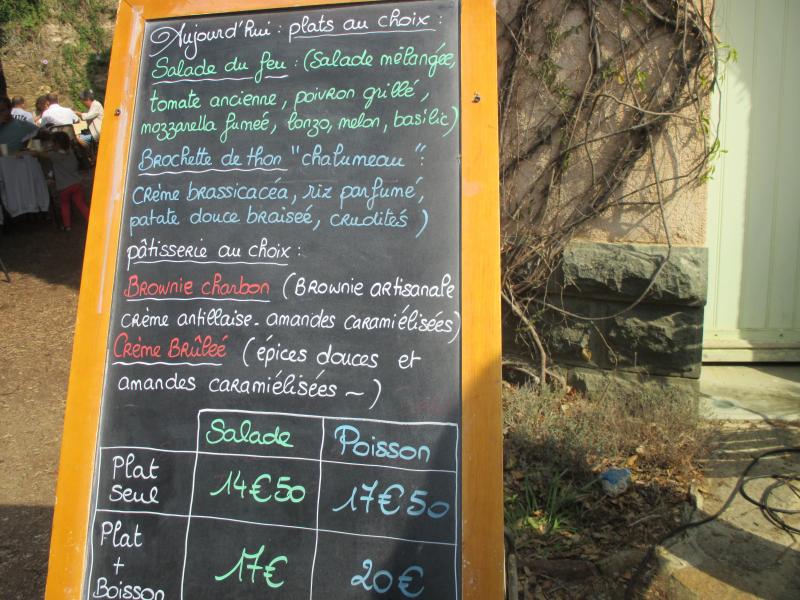 Aujourd'hui : plats au choix :
Salade du feu : (Salade mélangée,
tomate ancienne, poivron grillé,
mozzarella fumeé, lonzo, melon, basilic)
Brochette de thon "chalumeau" :
Crème brassicacéa, riz parfumé,
patate douce braiseé, crudités)
pâtisserie au choix :
Brownie charbon (Brownie artisanale
crème antillaise - amandes caramiélisées)
Crème Brûleé (épices douces et
amandes caramiélisées ~)
Salade Poisson
Plat seul 14€50 17€50
Plat + Boisson 17€ 20€